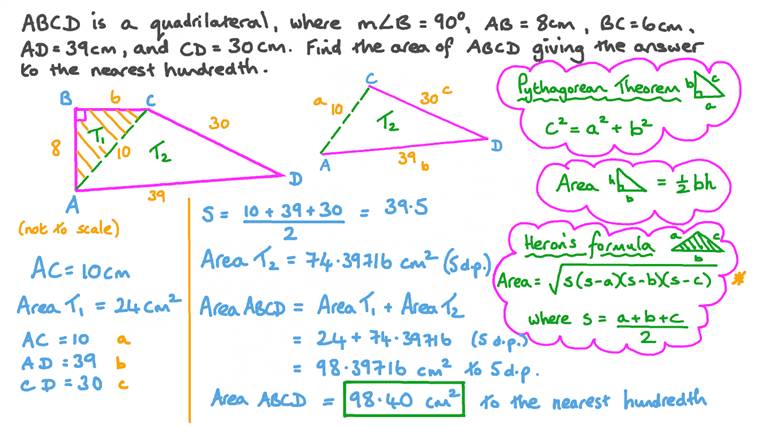 ABCD is a quadrilateral, where m∠B = 90°, AB = 8cm, BC = 6cm,
AD = 39cm, and CD = 30cm. Find the area of ABCD giving the answer
to the nearest hundredth.
B 6 C
8 T₁ 10 T₂ 30
A 39 D
(not to scale)
C
a 10 30 c
T₂
A 39 b D
Pythagorean Theorem
b c
a
c² = a² + b²
Area h b = ½bh
Heron's formula a c
b
Area = √s(s-a)(s-b)(s-c) *
where s = a+b+c
2
AC = 10cm
Area T₁ = 24cm²
AC = 10 a
AD = 39 b
CD = 30 c
S = 10 + 39 + 30 = 39.5
2
Area T₂ = 74.39716 cm² (5d.p.)
Area ABCD = Area T₁ + Area T₂
= 24 + 74.39716 (5 d.p.)
= 98.39716 cm² to 5d.p.
Area ABCD = 98.40 cm² to the nearest hundredth